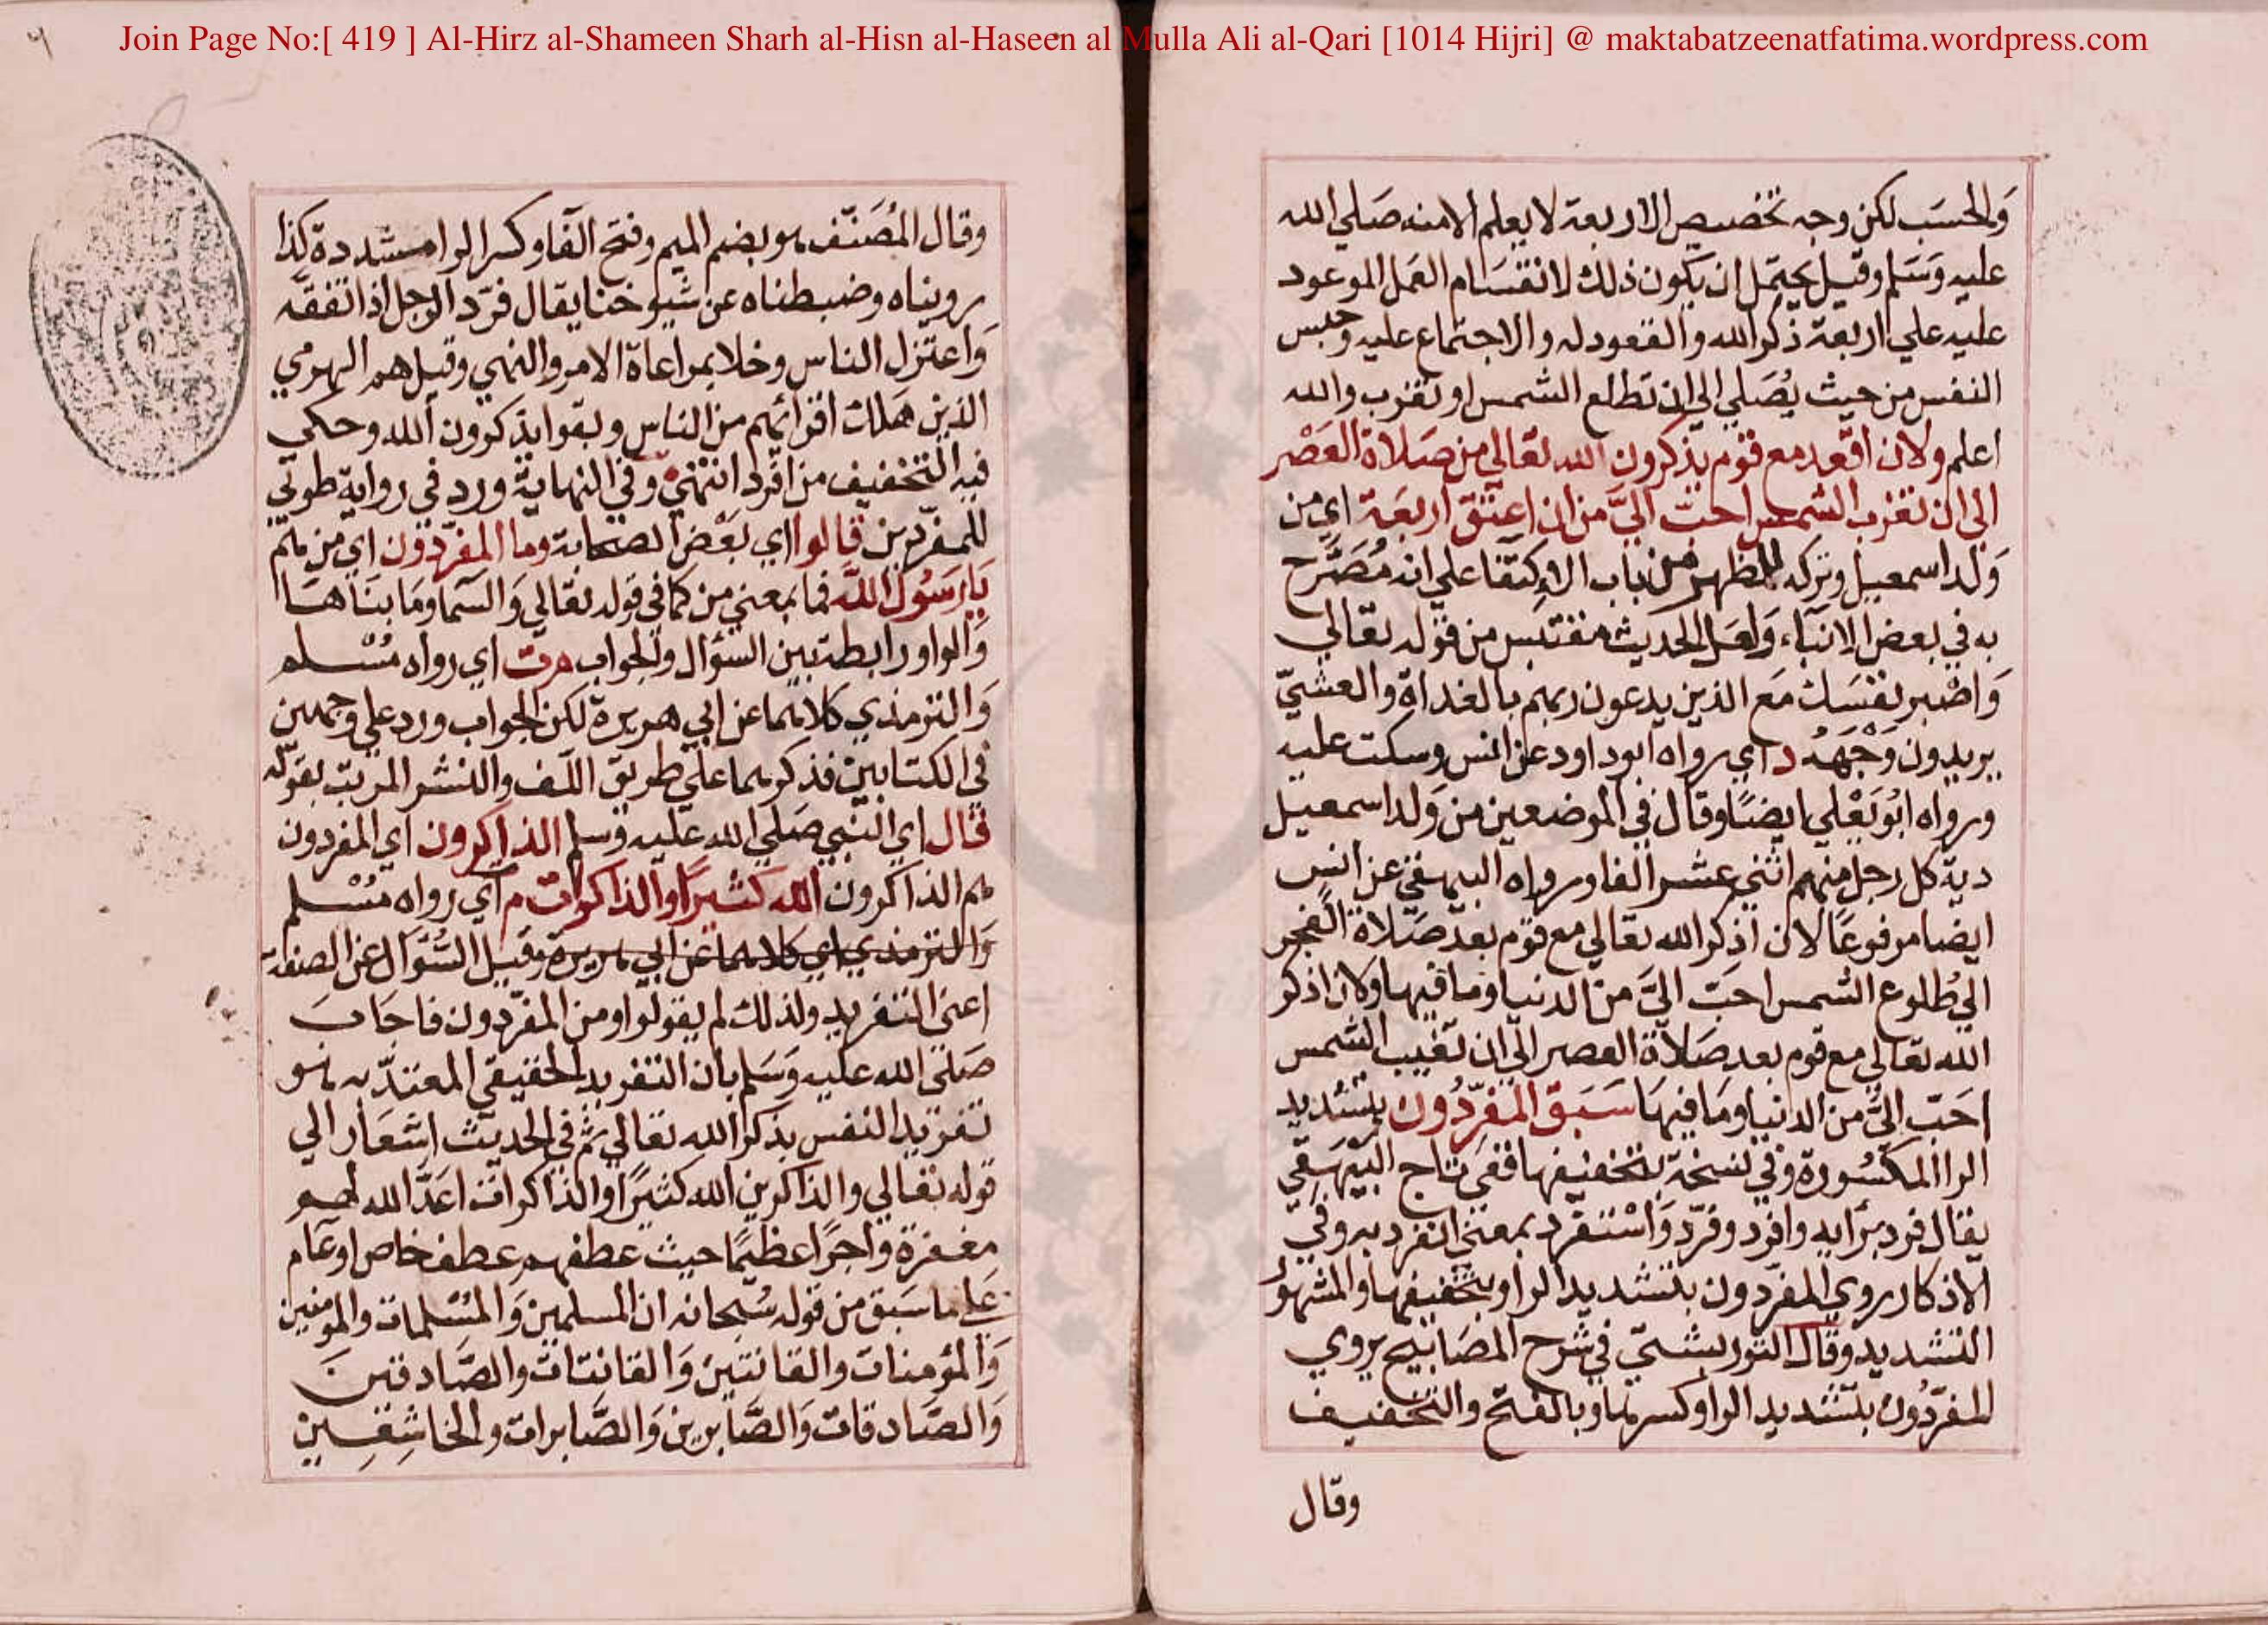 Join Page No:[ 419 ] Al-Hirz al-Shameen Sharh al-Hisn al-Haseen al Mulla Ali al-Qari [1014 Hijri] @ maktabatzeenatfatima.wordpress.com
والحسَب لكن وجه تخصيص الاربعة لا يعلم الا منه صَلي الله
عليه وَسَلم وقيل يحتمل ان يكون ذلك لانقسَام العَمل الموعود
عليه علي اربعة ذكر الله والقعود له والاجتماع عليه وحبس
النفس من حيث يُصَلي الي ان تطلع الشمس او تغرب والله
اعلم ولان اقعد مع قوم يذكرون الله تعالي من صَلاة العَصْر
الي ان تغرب الشمس احبّ اليَّ من ان اعتق اربعَة اي من
وَلد اسمعيل وتركه للظهر من باب الاكتفا علي انه مُصَرَّح
به في بعض الانبآء ولعَل الحديث مقتبس من قوله تعالي
وَاصْبر نفسَك مَع الذين يدعون ربهم بالغداة والعشيّ
يريدون وَجْهَهُ د اي رواه ابو داود عن انس وسكت عليه
ورواه ابُو يَعْلي ايضًا وقال في الموضعين من وَلد اسمعيل
دية كل رجل منهم اثني عشر الفا ورواه البيهقي عن انس
ايضا مرفوعًا لان اذكر الله تعالي مع قوم بعد صَلاة الفجر
الي طُلوع الشمس احبّ اليَّ من الدنيا وما فيها ولان اذكر
الله تعالي مع قوم بعد صَلاة العصر الي ان تغيب الشمس
احَبّ اليَّ من الدنيا ومَا فيهَا سَبَقَ المُفَرِّدُون بتشديد
الرا المكسُورة وفي نسخة بتخفيفها ففي تاج البَيْهَقِي
يقال فرد برايه وافرد وفرّد وَاسْتفرد بمعني انفرد به وفي
الاذكار روي المفرّدون بتشديد الرا وبتخفيفها والمشهور
التشديد وقال التوربشتي في شرح المصَابيح يروي
المفرّدُون بتشديد الرا وكسرها وبالفتح والتخفيف
وقال
وقال المُصَنّف هو بضم الميم وفتح الفا وكسر الرا مشددة كذا
رويناه وضبطناه عن شيوخنا يقال فرّد الرجل اذا تفقّه
وَاعتزل الناس وخلا بمراعاة الامر والنهي وقيل هم الهرمي
الذين هَلك اقرانهم من الناس وبقوا يذكرون الله وحكي
فيه التخفيف من افرد انتهي وفي النهاية ورد في رواية طوبي
للمفرّدين قالوا اي بَعْض الصحابة وما المفرّدون اي من هم
يَا رَسُولَ اللَّه فما بمعني من كما في قوله تعالي وَالسَّما وَمَا بنَاهَا
وَالواو رابطة بين السؤال والجواب م ت اي رواه مُسْلم
وَالترمذي كلاهما عن ابي هريرة لكن الجواب ورد علي وجهين
في الكتابين فذكرهما علي طريق اللف والنشر المرتب بقوله
قال اي النبي صَلي الله عليه وسلم الذاكرون اي المفردون
هم الذاكرون الله كثيرًا والذاكرات م اي رواه مُسْلم
وَالترمذي اي كلاهما عن ابي هريرة وقيل السُّؤال عن الصفة
اعني التفريد ولذلك لم يقولوا ومن المفرّدون فاجَابَ
صَلي الله عليه وَسَلم بان التفريد الحقيقي المعتدّ به هو
تفريد النفس بذكر الله تعالي ثم في الحديث اشعَار الي
قوله تعالي والذاكرين الله كثيرًا والذاكرات اعَدَّ الله لهم
مغفرة وَاجرًا عظيمًا حيث عطفهم عطف خاص او عَام
عَلي ما سَبق من قوله سُبحانه ان المسلمين وَالمُسْلمات والمومنين
وَالمؤمنات والقانتين وَالقانتات والصَّادقين
وَالصَّادقات وَالصَّابرين وَالصَّابرات والخاشِعِين